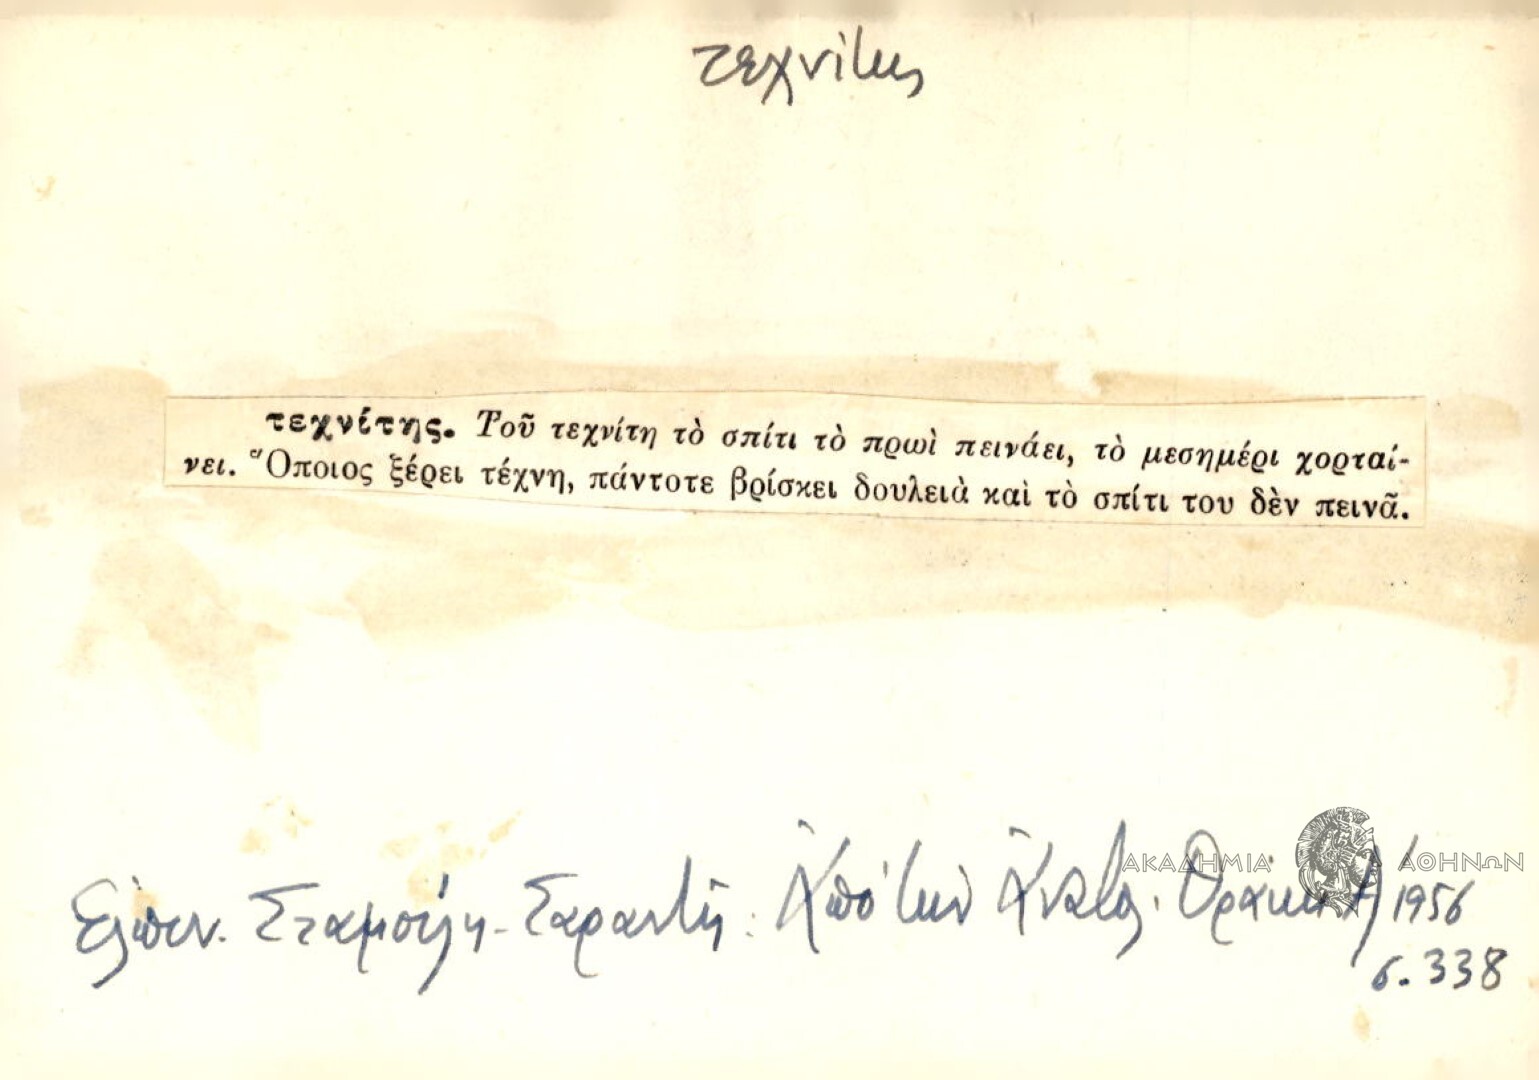 τεχνίτης
τεχνίτης. Τοῦ τεχνίτη τὸ σπίτι τὸ πρωὶ πεινάει, τὸ μεσημέρι χορταί-
νει. Ὅποιος ξέρει τέχνη, πάντοτε βρίσκει δουλειὰ καὶ τὸ σπίτι του δὲν πεινᾶ.
ΑΚΑΔΗΜΙΑ ΑΘΗΝΩΝ
Ἐλπιν. Σταμούλη-Σαραντῆ: Ἀπὸ τὴν Ἀνατολ. Θράκη 1956
σ. 338